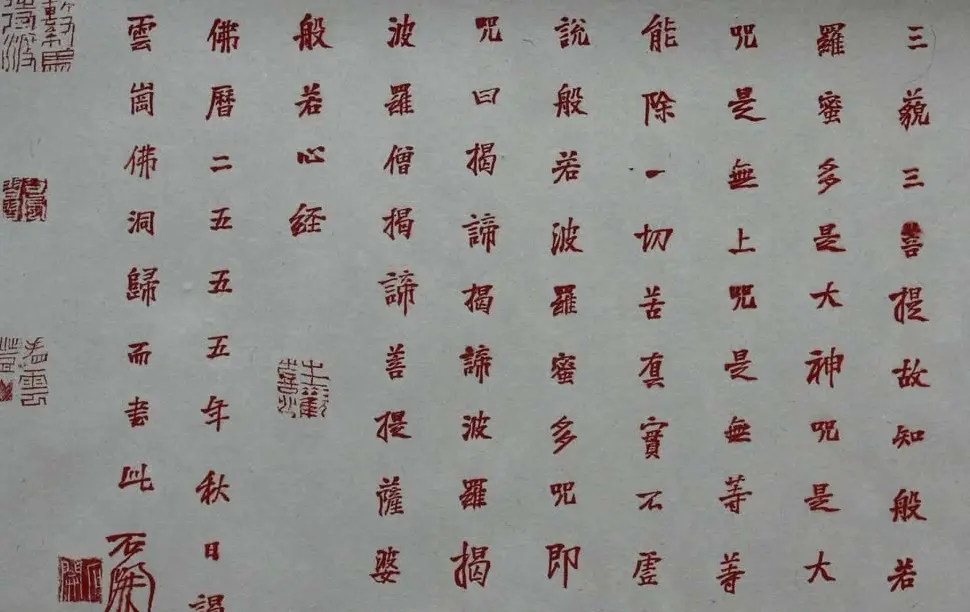 三藐三菩提故知般若
羅蜜多是大神咒是大
咒是無上咒是無等等
能除一切苦真實不虛
說般若波羅蜜多咒即
咒曰揭諦揭諦波羅揭
波羅僧揭諦善提薩婆
般若心経
佛曆二五五五年秋日謁
雲崗佛洞歸而書此
石開